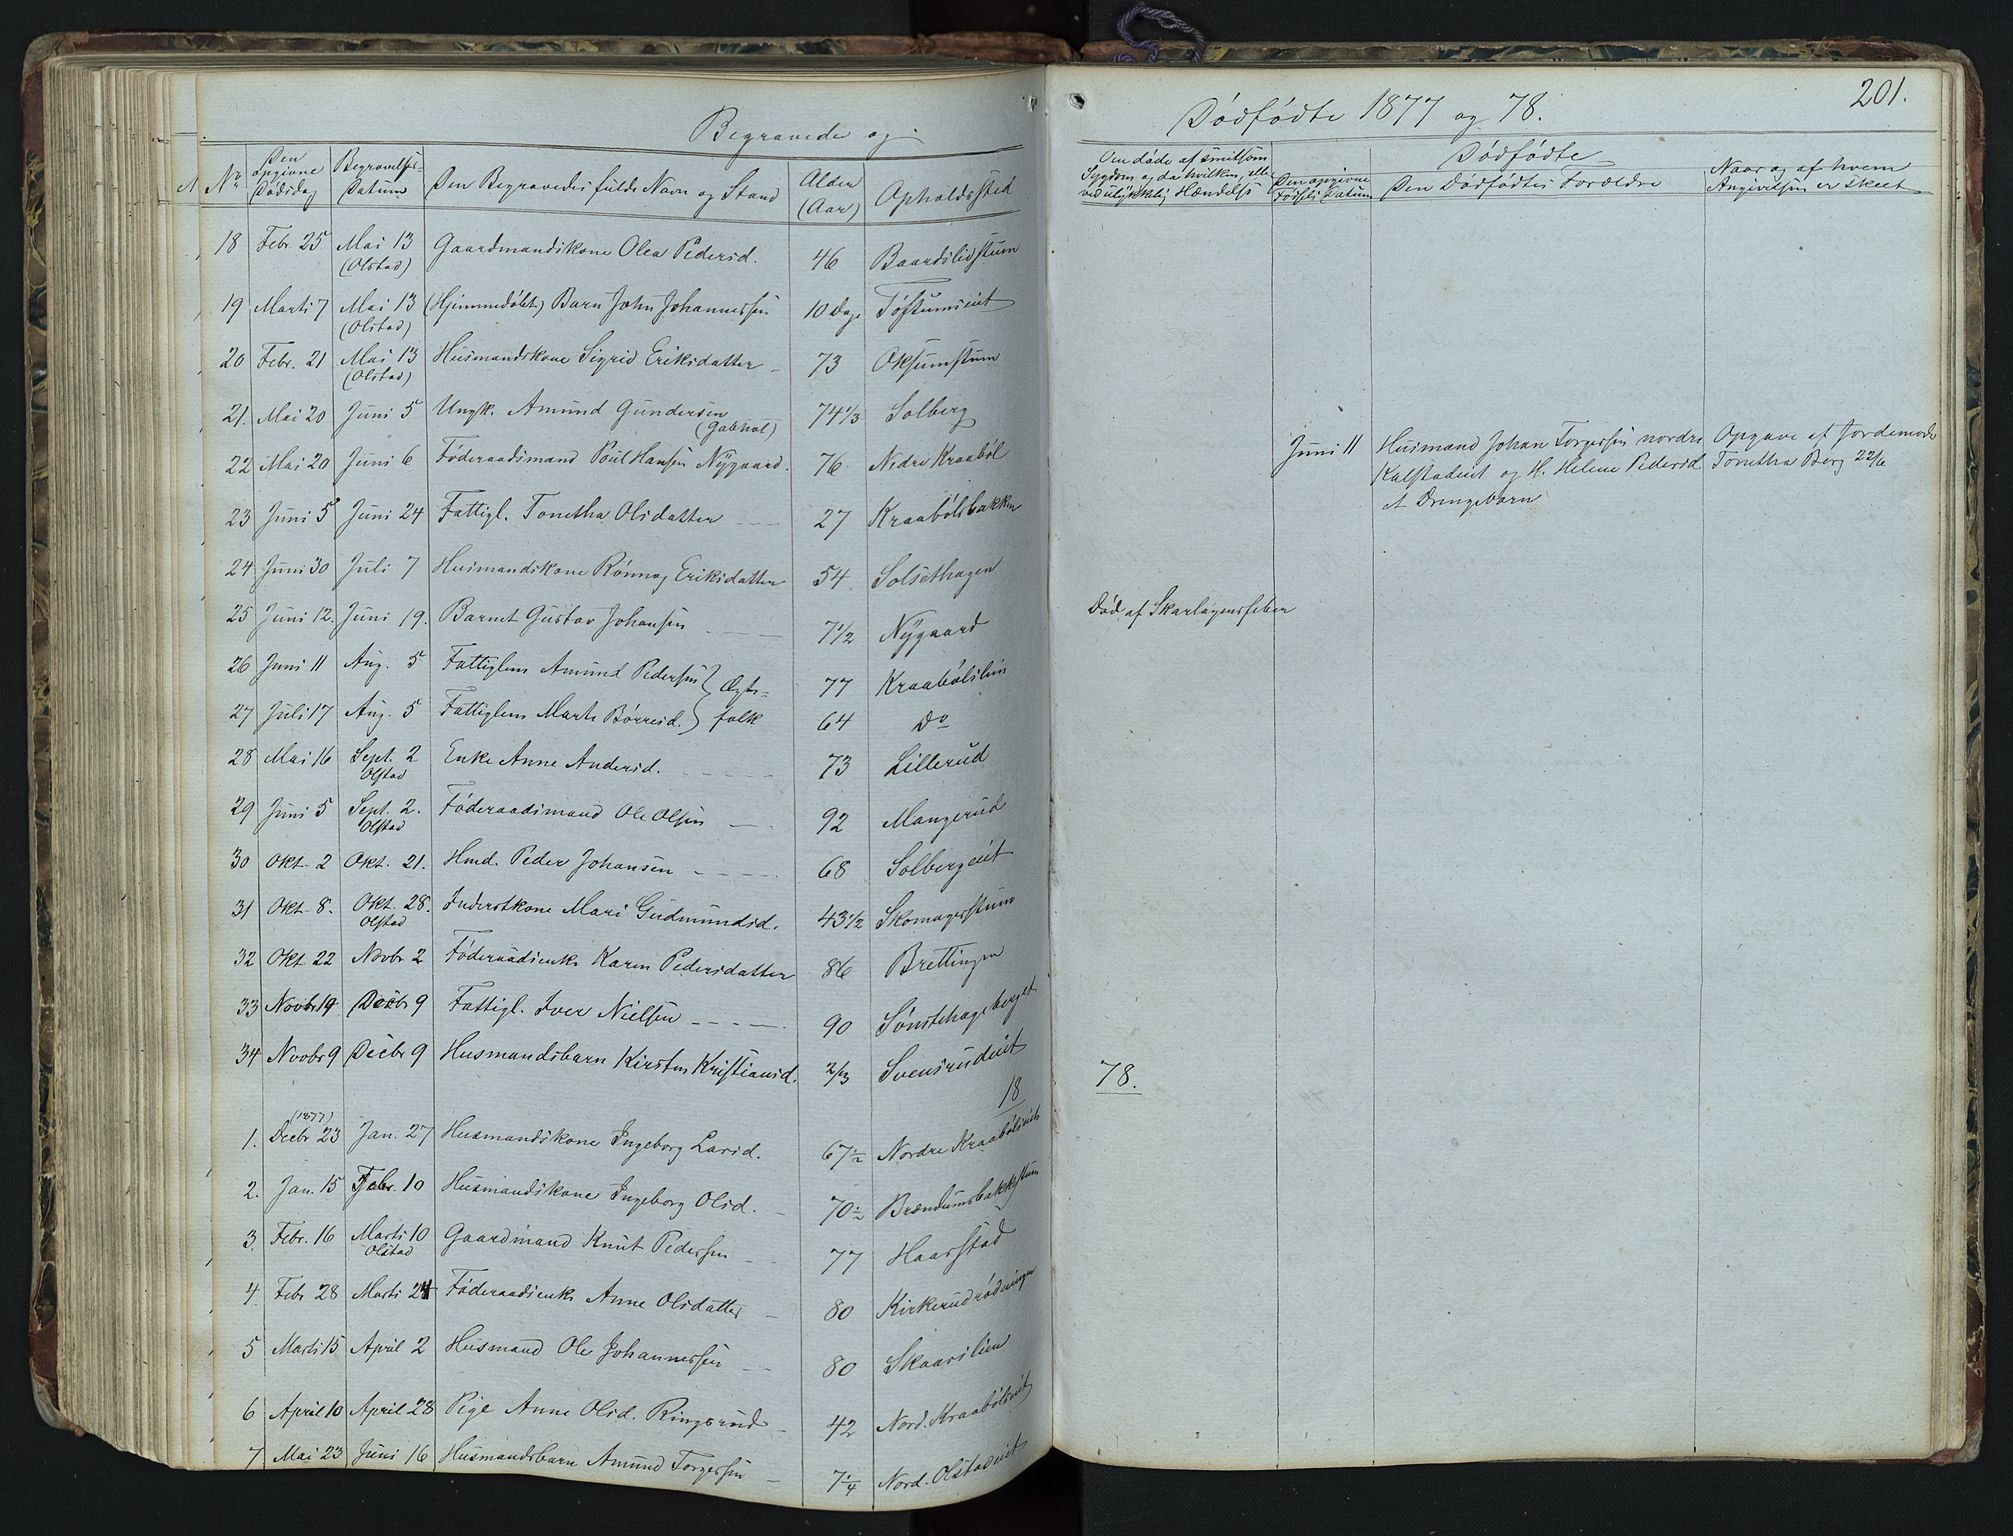 Begravede og
Dødfødte 1877 og 78.
201.
No
Den opgivne Dødsdag
Begravelses-Datum
Den Begravedes fulde Navn og Stand
Alder (Aar)
Opholdssted
Om døde af smitsom Sygdom og da hvilken, eller ved ulykkelig Hændelse
Dødfødte
Den opgivne Fødsels Datum
Den Dødfødtes Forældre
Naar og af hvem Angivelsen er skeet
18 Febr. 25 Mai 13 (Olstad) Gaardmandskone Olea Pedersd. 46 Baardslistuen
19 Marts 7 Mai 13 (Olstad) (Hjemmedøbt) Barn John Johannessen 10 Dage Toftumseiet
20 Febr. 21 Mai 13 (Olstad) Husmandskone Sigrid Eriksdatter 73 Oksumstuen
21. Mai 20 Juni 5 Ungk. Amund Gundersen (Gabhol) 74 1/3 Solberg
22 Mai 20 Juni 6 Føderaadsmand Poul Hansen Nygaard. 76 Nedre Kraabøl
Juni 11 Husmand Johan Torgersen nordre Opgave af Jordemoder
Kalstadeiet og H. Helene Pedersd. Tonetha Berg 22/6
et Drengebarn
23 Juni 5 Juni 24 Fattigl. Tonetha Olsdatter 27 Kraabølsbakken
24 Juni 30 Juli 7 Husmandskone Rønnog Eriksdatter 54 Solsethagen
25 Juni 12. Juni 19. Barnet Gustav Johansen 7 1/2 Nygaard Død af Skarlagensfeber
26 Juni 11 Aug. 5 Fattiglem Amund Pedersen } Ægte- 77 Kraabølslien
27 Juli 17 Aug. 5 Fattiglem Marte Børresd. } folk 64 Do
28 Mai 16 Sept. 2 Olstad Enke Anne Andersd. 73 Lillerud
29 Juni 5 Sept. 2. Olstad Føderaadsmand Ole Olsen 92 Mangerud
30 Okt. 2 Okt. 21. Hmd. Peder Johansen 68 Solbergeiet
31 Okt. 8. Okt. 28. Olstad Inderstkone Mari Gudmundsd. 43 1/2 Skomagerstuen
32 Okt. 22 Novbr 2 Føderaadsenke Karen Pedersdatter 86 Brettingen
33 Novbr 19 Decbr 9 Fattigl. Iver Nielsen 90 Sønstehageberget
34 Novbr 9 Decbr 9 Husmandsbarn Kirsten Kristiansd. 2/13 Svensrudeiet
18
78.
1. (1877) Decbr 23 Jan. 27 Husmandskone Ingeborg Larsd. 67 1/2 Nordre Kraabølseiet
2. Jan. 15 Febr. 10 Husmandskone Ingeborg Olsd. 70 1/2 Brændumsbakkstuen
3. Febr. 16 Marts 10 Olstad Gaardmand Knut Pedersen 77 Haarstad
4. Febr. 28 Marts 24 Føderaadsenke Anne Olsdatter 80 Kirkerudrødningen
5 Marts 15 April 2 Husmand Ole Johannessen 80 Skaarslien
6 April 10 April 28 Pige Anne Olsd. Ringsrud 42 Nord. Kraabølseiet
7 Mai 23 Juni 16 Husmandsbarn Amund Torgersen 7 1/4 Nord. Olstadeiet